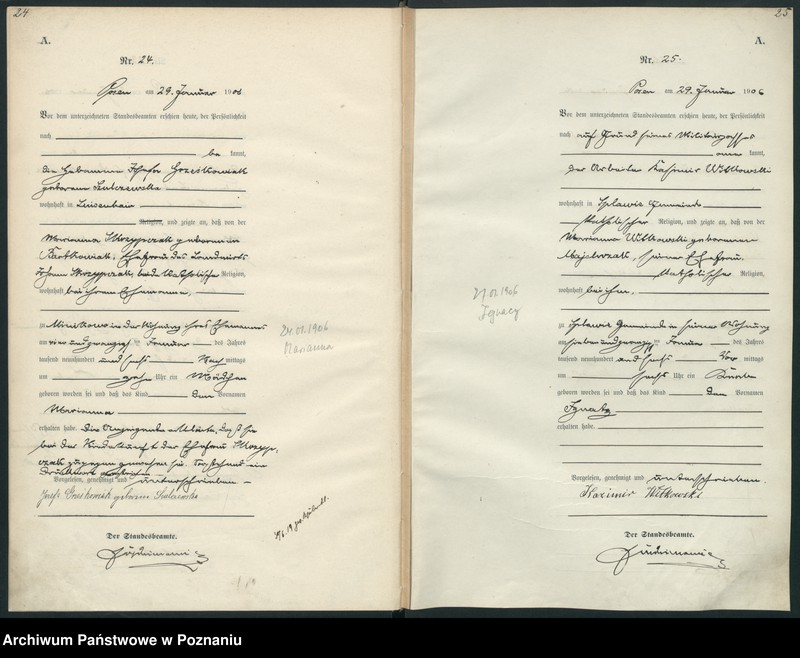 24
A.
Nr. 24.
Posen am 29. Januar 1906
Vor dem unterzeichneten Standesbeamten erschien heute, der Persönlichkeit
nach
be kannt,
die Hebamme Josefa Grześkowiak
geborene
wohnhaft in Luisenhain
Religion, und zeigte an, daß von der
Marianna Skrzypczak geborenen
Bartkowiak, Ehefrau des Landwirts
Skrzypczak, beide katholischer Religion,
wohnhaft bei ihrem Ehemanne,
zu Minikowo in der Wohnung ihres Ehemannes
am vier und zwanzigsten Januar des Jahres
tausend neunhundert und sechs Nach mittags
um zehn Uhr ein Mädchen
geboren worden sei und daß das Kind den Vornamen
Marianna
erhalten habe. Die Anzeigende erklärte, daß sie
bei der Niederkunft der Ehefrau Skrzyp-
czak zugegen gewesen sei. Vorstehend ein
Druckwort gestrichen
Vorgelesen, genehmigt und unterschrieben
Josefa Grześkowiak geborene
Der Standesbeamte.
24.01.1906
Marianna
25
A.
Nr. 25.
Posen am 29. Januar 1906
Vor dem unterzeichneten Standesbeamten erschien heute, der Persönlichkeit
nach auf Grund seines Militärpasses
aner kannt,
der Arbeiter Kasimir Witkowski
wohnhaft in Gemeinde
katholischer Religion, und zeigte an, daß von der
Marianna Witkowski geborenen
Majchrzak, seiner Ehefrau,
katholischer Religion,
wohnhaft bei ihm,
zu Gemeinde in seiner Wohnung
am sieben und zwanzigsten Januar des Jahres
tausend neunhundert und sechs Vor mittags
um sechs Uhr ein Knabe
geboren worden sei und daß das Kind den Vornamen
Ignatz
erhalten habe.
Vorgelesen, genehmigt und unterschrieben.
Kazimir Witkowski
Der Standesbeamte.
27.01.1906
Ignacy
Archiwum Państwowe w Poznaniu